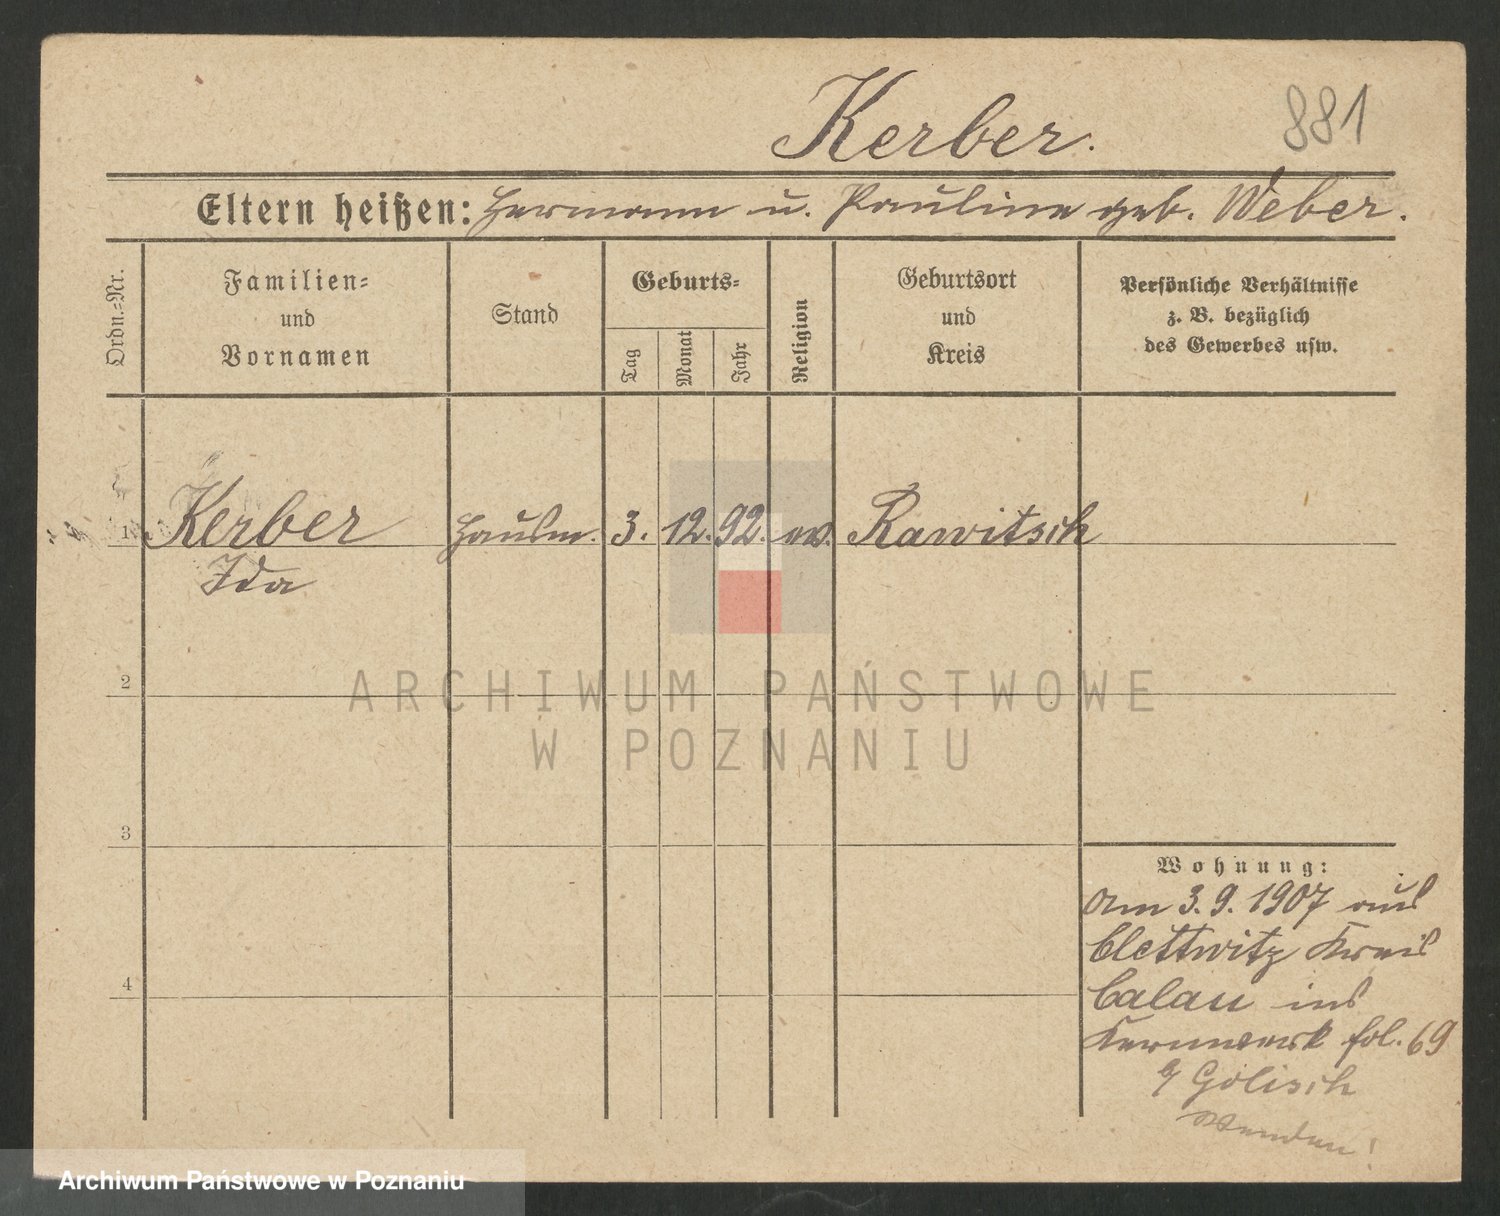 Kerber.
881
Eltern heißen: Hermann u. Pauline geb. Weber.
Ordn.-Nr.
Familien-
und
Vornamen
Stand
Geburts-
Tag
Monat
Jahr
Religion
Geburtsort
und
Kreis
Persönliche Verhältnisse
z. B. bezüglich
des Gewerbes usw.
1 Kerber Hausm. 3. 12. 92. ev. Rawitsch
Ida
2
ARCHIWUM PAŃSTWOWE
W POZNANIU
3
Wohnung:
Am 3.9.1907 aus
Clettwitz Kreis
Calau ins
4
Kernwerk fol. 69
b/ Golisch
Wenden!
Archiwum Państwowe w Poznaniu